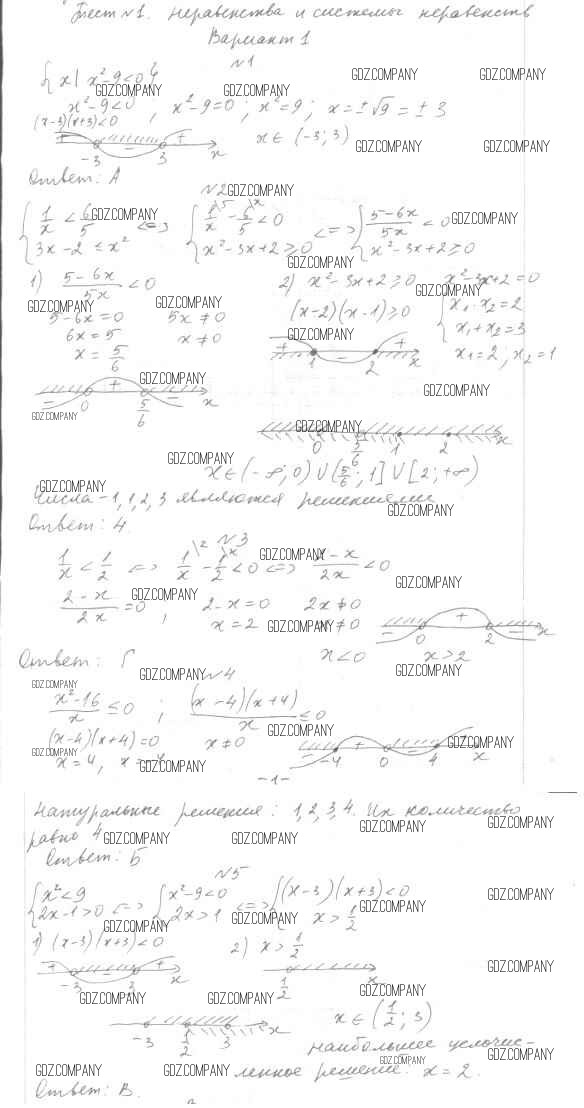 Тест №1. Неравенства и системы неравенств
Вариант 1
№1
{x | x²-9<0}
x²-9<0, x²-9=0; x²=9; x=±√9=±3
(x-3)(x+3)<0
+ - +
-3 3 x
x∈(-3; 3)
Ответ: А
№2
{1/x < 6/5; 3x-2 ≤ x² <=> {1/x - 6/5 < 0; x²-3x+2≥0 <=> {(5-6x)/5x < 0; x²-3x+2≥0
1) (5-6x)/5x < 0
5-6x=0 5x≠0
6x=5 x≠0
x=5/6
- + -
0 5/6 x
2) x²-3x+2≥0 x²-3x+2=0
(x-2)(x-1)≥0 {x₁·x₂=2; x₁+x₂=3
x₁=2; x₂=1
+ - +
1 2 x
0 5/6 1 2 x
x∈(-∞; 0)∪(5/6; 1]∪[2; +∞)
Числа -1, 1, 2, 3 являются решениями
Ответ: 4.
№3
1/x < 1/2 <=> 1/x - 1/2 < 0 <=> (2-x)/2x < 0
(2-x)/2x = 0, 2-x=0 2x≠0
x=2 x≠0
- + -
0 2 x
x<0 x>2
Ответ: Г
№4
(x²-16)/x ≤ 0; (x-4)(x+4)/x ≤ 0
(x-4)(x+4)=0 x≠0
x=4, x=-4
- + - +
-4 0 4 x
-1-
Натуральные решения: 1, 2, 3, 4. Их количество
равно 4
Ответ: Б
№5
{x²<9; 2x-1>0 <=> {x²-9<0; 2x>1 <=> {(x-3)(x+3)<0; x>1/2
1) (x-3)(x+3)<0 2) x>1/2
+ - +
-3 3 x
1/2 x
-3 1/2 3 x
x∈(1/2; 3)
наибольшее целочис-
ленное решение: x=2.
Ответ: В.
GDZ.COMPANY